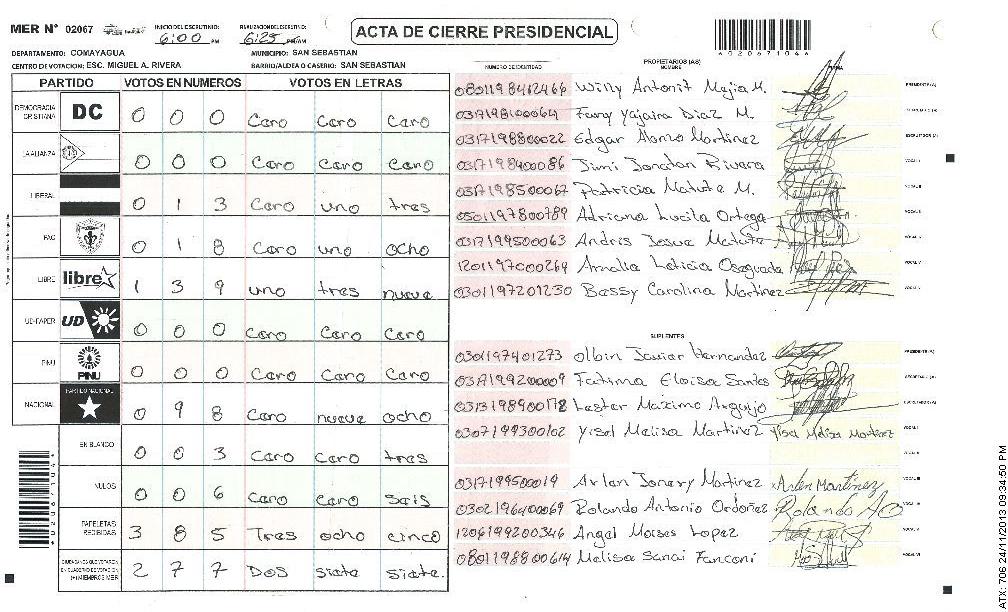 MER N° 02067
INICIO DEL ESCRUTINIO: 6:00 PM
FINALIZACION DEL ESCRUTINIO: 6:25 PM/AM
ACTA DE CIERRE PRESIDENCIAL
DEPARTAMENTO: COMAYAGUA
MUNICIPIO: SAN SEBASTIAN
CENTRO DE VOTACION: ESC. MIGUEL A. RIVERA
BARRIO/ALDEA O CASERIO: SAN SEBASTIAN
PARTIDO VOTOS EN NUMEROS VOTOS EN LETRAS
DEMOCRACIA CRISTIANA DC 0 0 0 Cero Cero Cero
LA ALIANZA 0 0 0 Cero Cero Cero
LIBERAL 0 1 3 Cero uno tres
PAC 0 1 8 Cero uno ocho
LIBRE libre 1 3 9 uno tres nueve
UD-FAPER UD 0 0 0 Cero Cero Cero
PINU PINU 0 0 0 Cero Cero Cero
NACIONAL PARTIDO NACIONAL 0 9 8 Cero nueve ocho
EN BLANCO 0 0 3 Cero Cero tres
NULOS 0 0 6 Cero Cero Seis
PAPELETAS RECIBIDAS 3 8 5 Tres ocho cinco
CIUDADANOS QUE VOTARON EN CUADERNO DE VOTACION (+) MIEMBROS MER 2 7 7 Dos siete siete.
NUMERO DE IDENTIDAD
PROPIETARIOS (AS)
NOMBRE
FIRMA
0801198462464 Willy Antonit Mejia M. PRESIDENTE (A)
0317198100064 Fany Yajaira Diaz M. SECRETARIO (A)
0317198800022 Edgar Alonso Martinez ESCRUTADOR (A)
0317198400086 Jimi Jonatan Rivera VOCAL I
0317198500067 Patricia Matute M. VOCAL II
0501197800789 Adriana Lucila Ortega
0317199500063 Andris Josue Matute
1201197000269 Amalia Leticia Oseguada
0301197201230 Bessy Carolina Martinez
SUPLENTES
0301197401273 Olbin Javier Hernandez PRESIDENTE (A)
0317199200009 Fatima Eloisa Santos SECRETARIO (A)
0313198900178 Lester Maximo Arguijo ESCRUTADOR (A)
0307199300102 Yisel Melisa Martinez Yisel Meliza Martinez VOCAL I
0317199500019 Arlen Jonery Martinez Arlen Martinez
0302196400069 Rolando Antonio Ordoñez Rolando AO
1206199200346 Angel Moises Lopez
0801198800614 Melisa Sanai Fanconi
ATX: 706 24/11/2013 09:34:50 PM